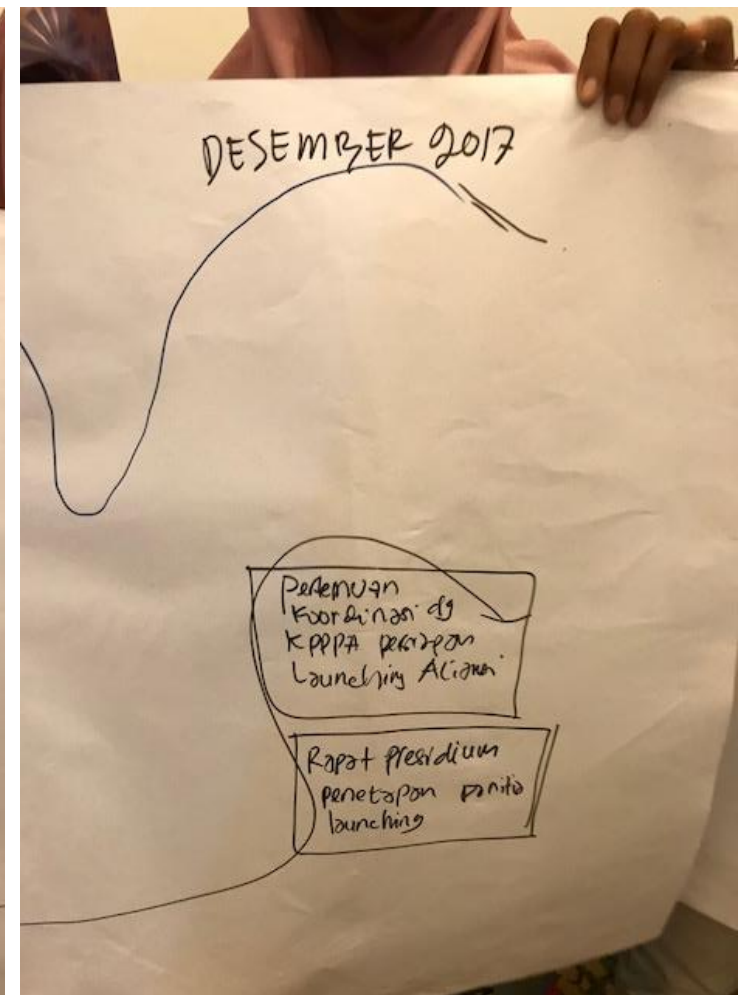 DESEMBER 2017
Pertemuan
Koordinasi dg
KPPPA persiapan
Launching Aliansi
Rapat presidium
penetapan panitia
launching